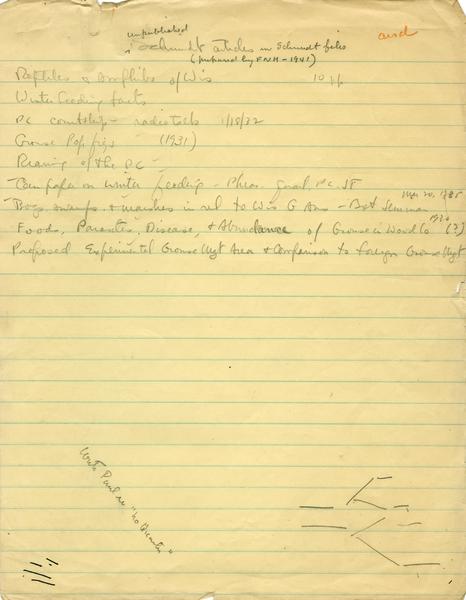 unpublished
Schmidt articles in Schmidt files
(prepared by FNH - 1941)
Reptiles & Amphibs of Wis 10 pp
Winter Feeding facts
PC courtship - radio talk 1/18/32
Grouse Pop figs (1931)
Plumage of the PC -
Comp. paper on winter feeding - Pheas. quail, PC, ST
Mar 20, 1935
Bogs, swamps & marshes in rel to Wis G Ams - Bot Seminar
Foods, Parasites, Disease, & Abundance of Grouse in Wood Co (?)
Proposed Experimental Grouse Mgt Area & Comparison to foreign Grouse Mgt
Write Paul re "